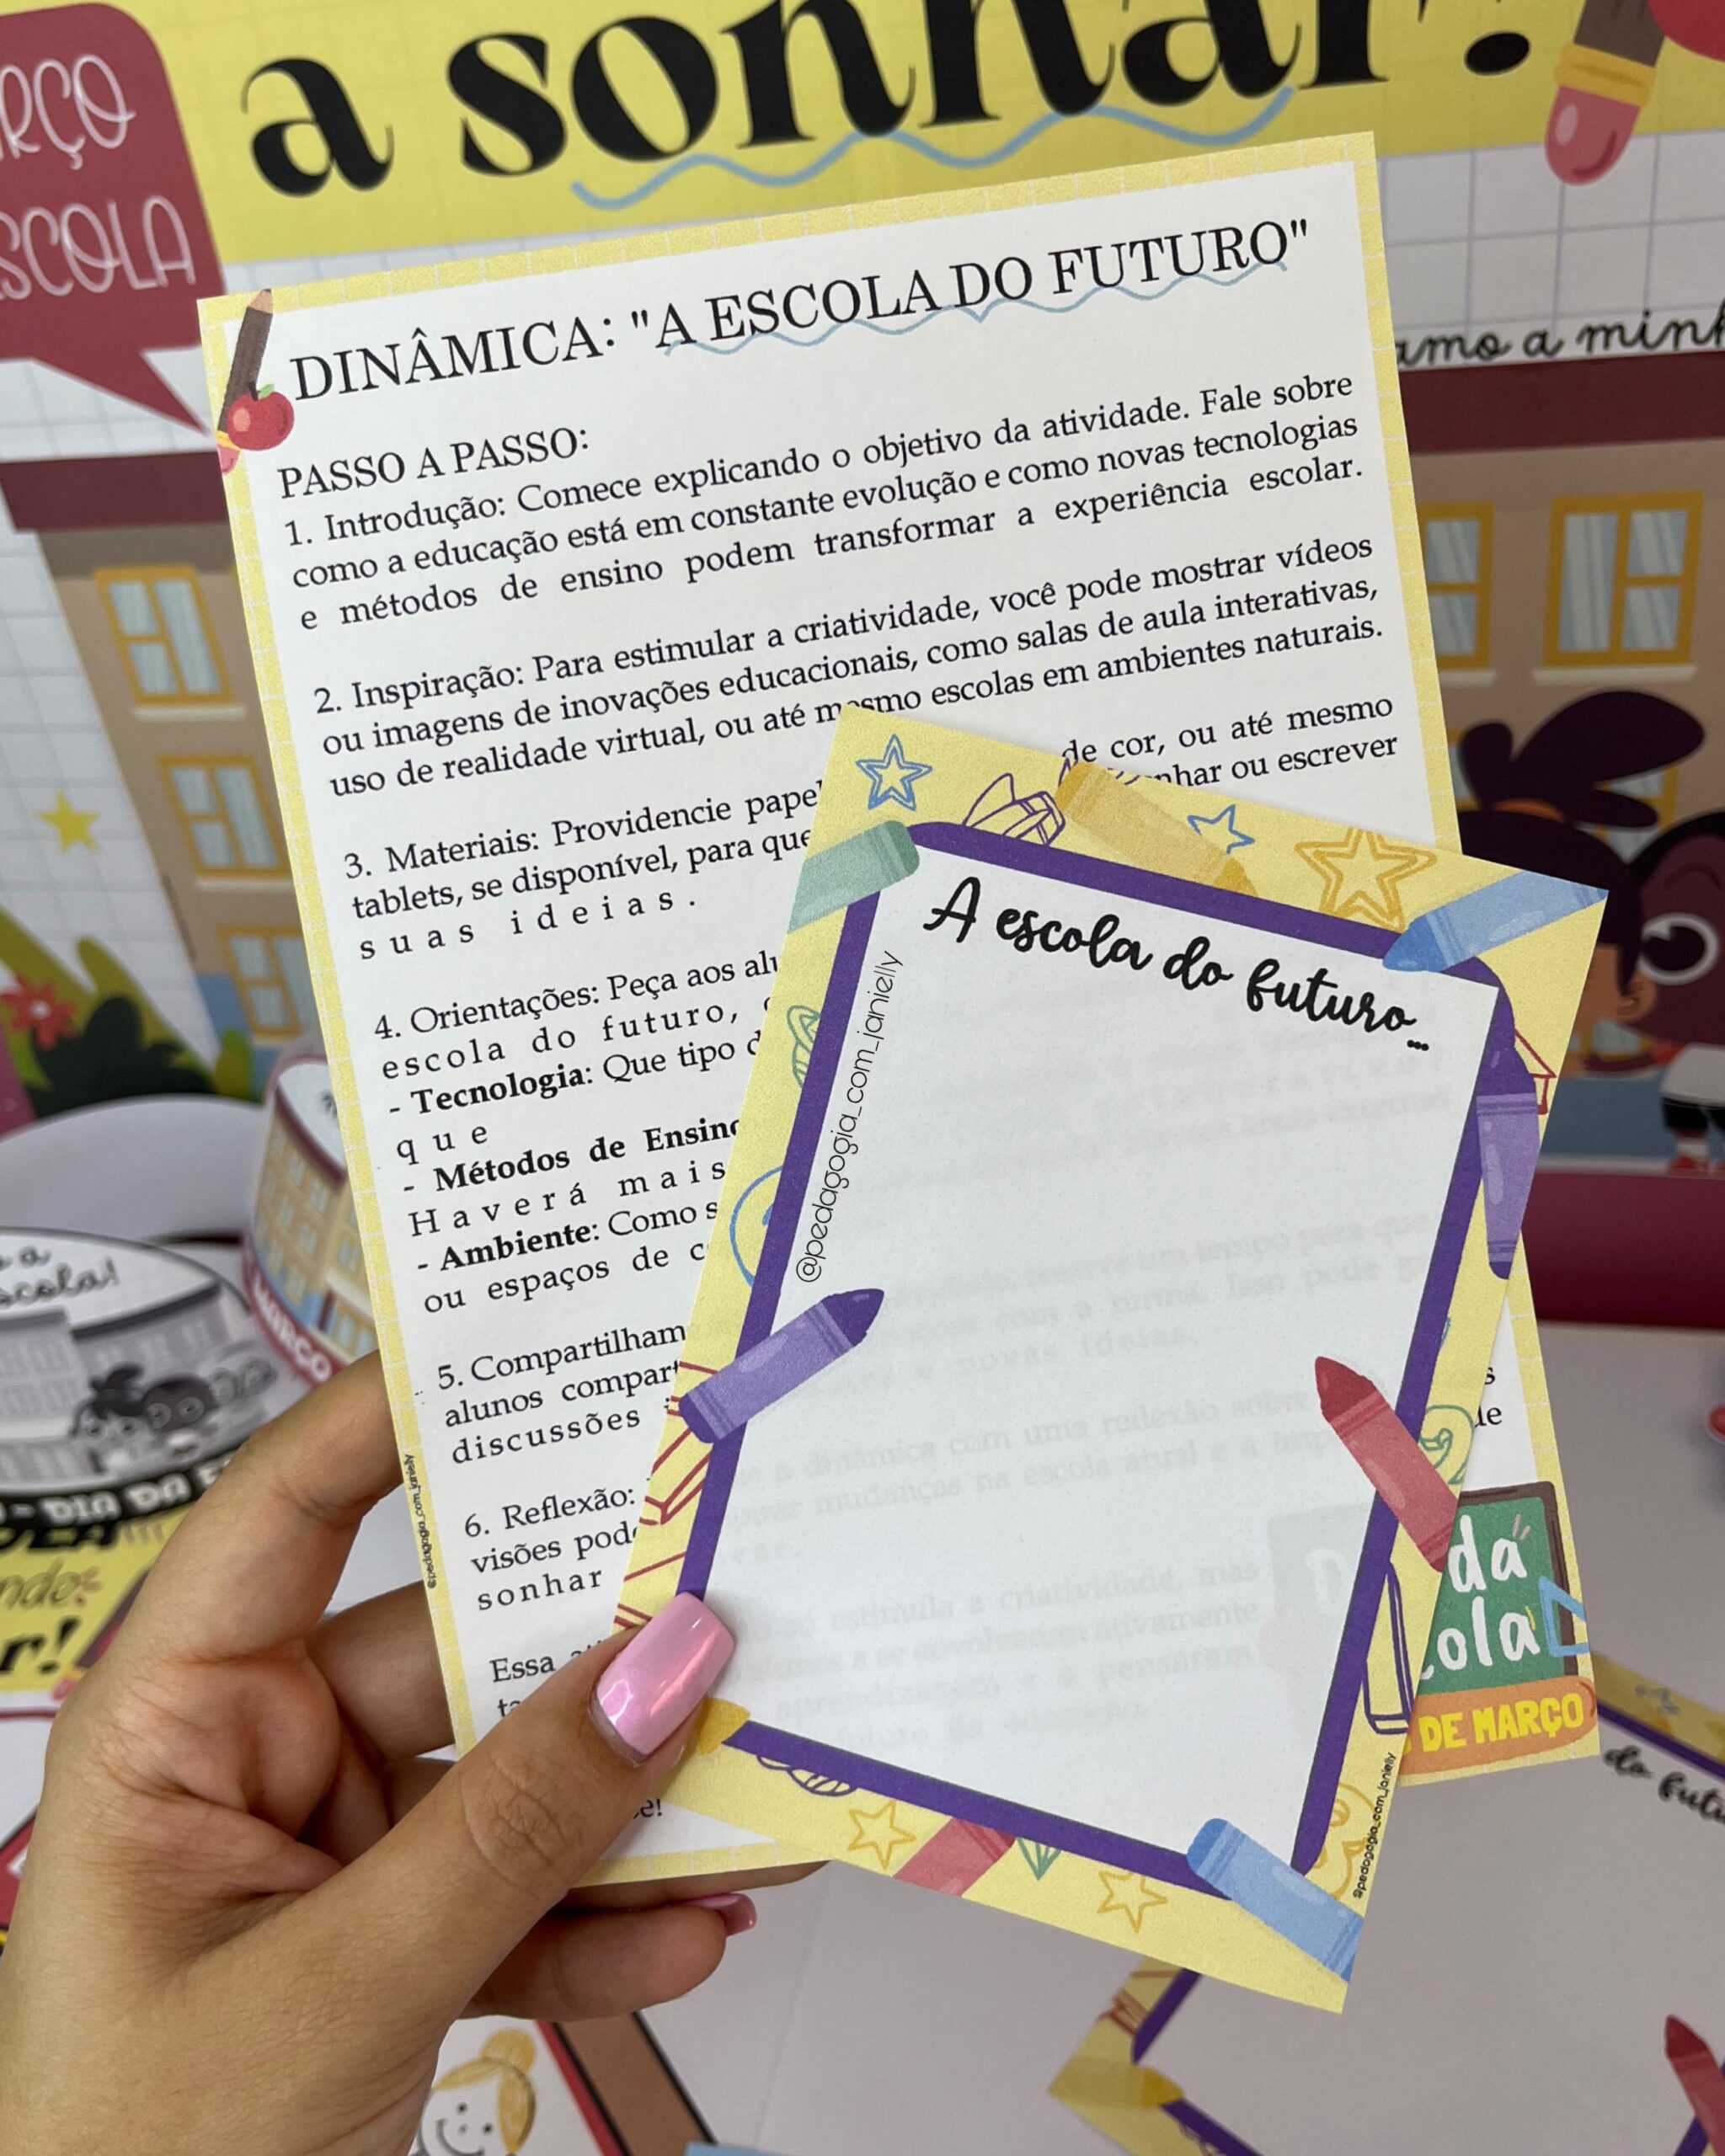 a sonhar!
RÇO
SCOLA
amo a minh
DINÂMICA: "A ESCOLA DO FUTURO"
PASSO A PASSO:
1. Introdução: Comece explicando o objetivo da atividade. Fale sobre
como a educação está em constante evolução e como novas tecnologias
e métodos de ensino podem transformar a experiência escolar.
2. Inspiração: Para estimular a criatividade, você pode mostrar vídeos
ou imagens de inovações educacionais, como salas de aula interativas,
uso de realidade virtual, ou até mesmo escolas em ambientes naturais.
3. Materiais: Providencie papel de cor, ou até mesmo
tablets, se disponível, para que nhar ou escrever
suas ideias.
4. Orientações: Peça aos alu
escola do futuro,
- Tecnologia: Que tipo d
que
- Métodos de Ensino
Haverá mais
- Ambiente: Como s
ou espaços de c
5. Compartilham
alunos compart
discussões
6. Reflexão:
visões pod
sonhar
Essa
s
de
e!
@pedagogia_com_janielly
A escola do futuro...
@pedagogia_com_janielly
@pedagogia_com_janielly
da
cola
DE MARÇO
a
scola!
- DIA DA E
MARÇO
nde
r!
do futu